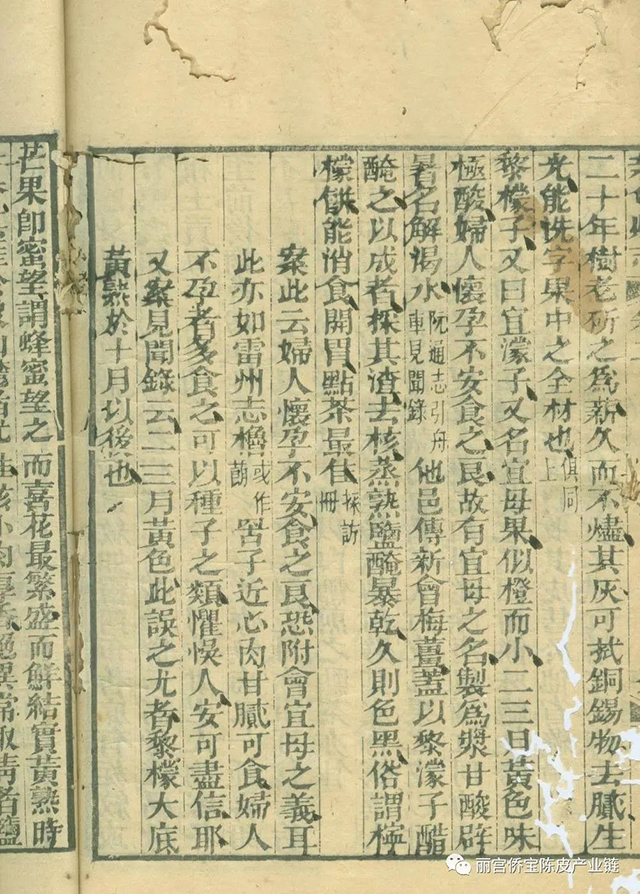 二十年樹老斫之爲薪久而不燼其灰可拭銅錫物去膩生
光能洗字果中之全材也俱同上
黎檬子又曰宜濛子又名宜母果似橙而小二三月黃色味
極酸婦人懷孕不安食之良故有宜母之名製爲漿甘酸辟
暑名解渴水阮通志引舟車見聞錄他邑傳新會梅薑蓋以黎濛子醋
醃之以成者探其渣去核蒸熟鹽醃暴乾久則色黑俗謂檸
檬餅能消食開胃點茶最佳採訪冊
案此云婦人懷孕不安食之良恐附會宜母之義耳
此亦如雷州志櫓或作罟子近心肉甘膩可食婦人
不孕者多食之可以種子之類懼悞人安可盡信耶
又案見聞錄云二三月黃色此誤之尤者黎檬大底
黃熟於十月以後也
芒果卽蜜望謂蜂蜜望之而喜花最繁盛而鮮結實黃熟時
丽宫侨宝陈皮产业链